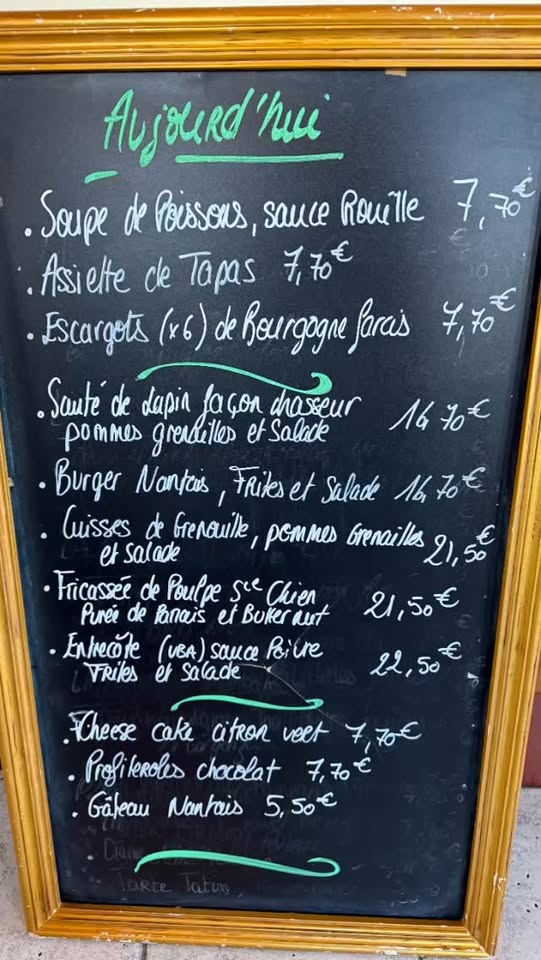 Aujourd'hui
. Soupe de Poissons, sauce Rouille 7,70€
. Assiette de Tapas 7,70€
. Escargots (x6) de Bourgogne farcis 7,70€
. Sauté de Lapin façon chasseur 14,70€
pommes grenailles et Salade
. Burger Nantais, Frites et Salade 16,70€
. Cuisses de Grenouille, pommes Grenailles 21,50€
et Salade
. Fricassée de Poulpe Sce Chien 21,50€
Purée de Panais et Butternut
. Entrecôte (VBA) sauce Poivre 22,50€
Frites et Salade
. Cheese cake citron vert 7,70€
. Profiteroles chocolat 7,70€
. Gâteau Nantais 5,50€
Tarte Tatin